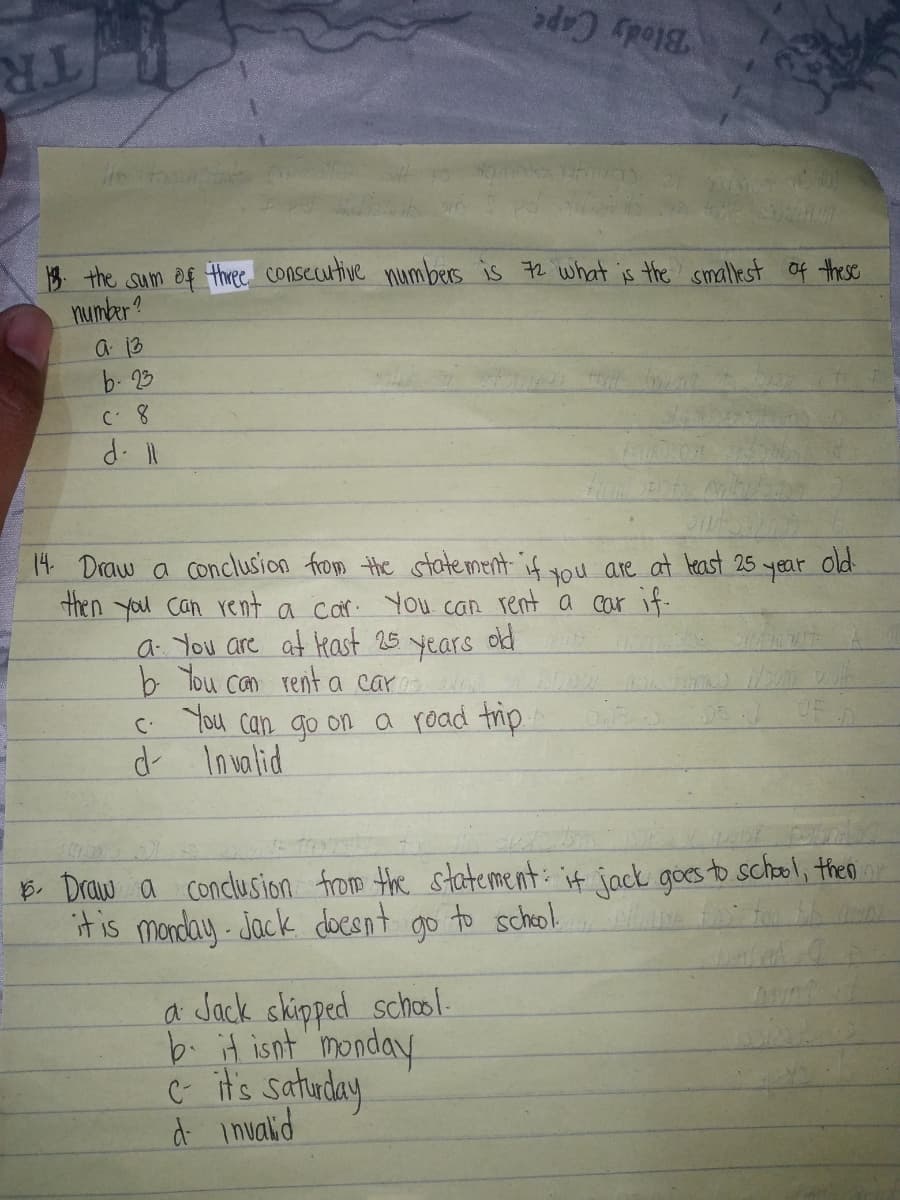 TR
Blody Cape
13. the sum of three consecutive numbers is 72 what is the smallest of these
number?
a. 13
b. 23
c. 8
d. 11
14. Draw a conclusion from the statement if you are at least 25 year old.
then you can rent a car. You can rent a car if.
a. You are at least 25 years old
b. You can rent a car
c. You can go on a road trip
d- Invalid
15. Draw a conclusion from the statement: if jack goes to school, then
it is monday. Jack doesnt go to school.
a. Jack skipped school.
b. it isnt monday
c- it's saturday
d. invalid